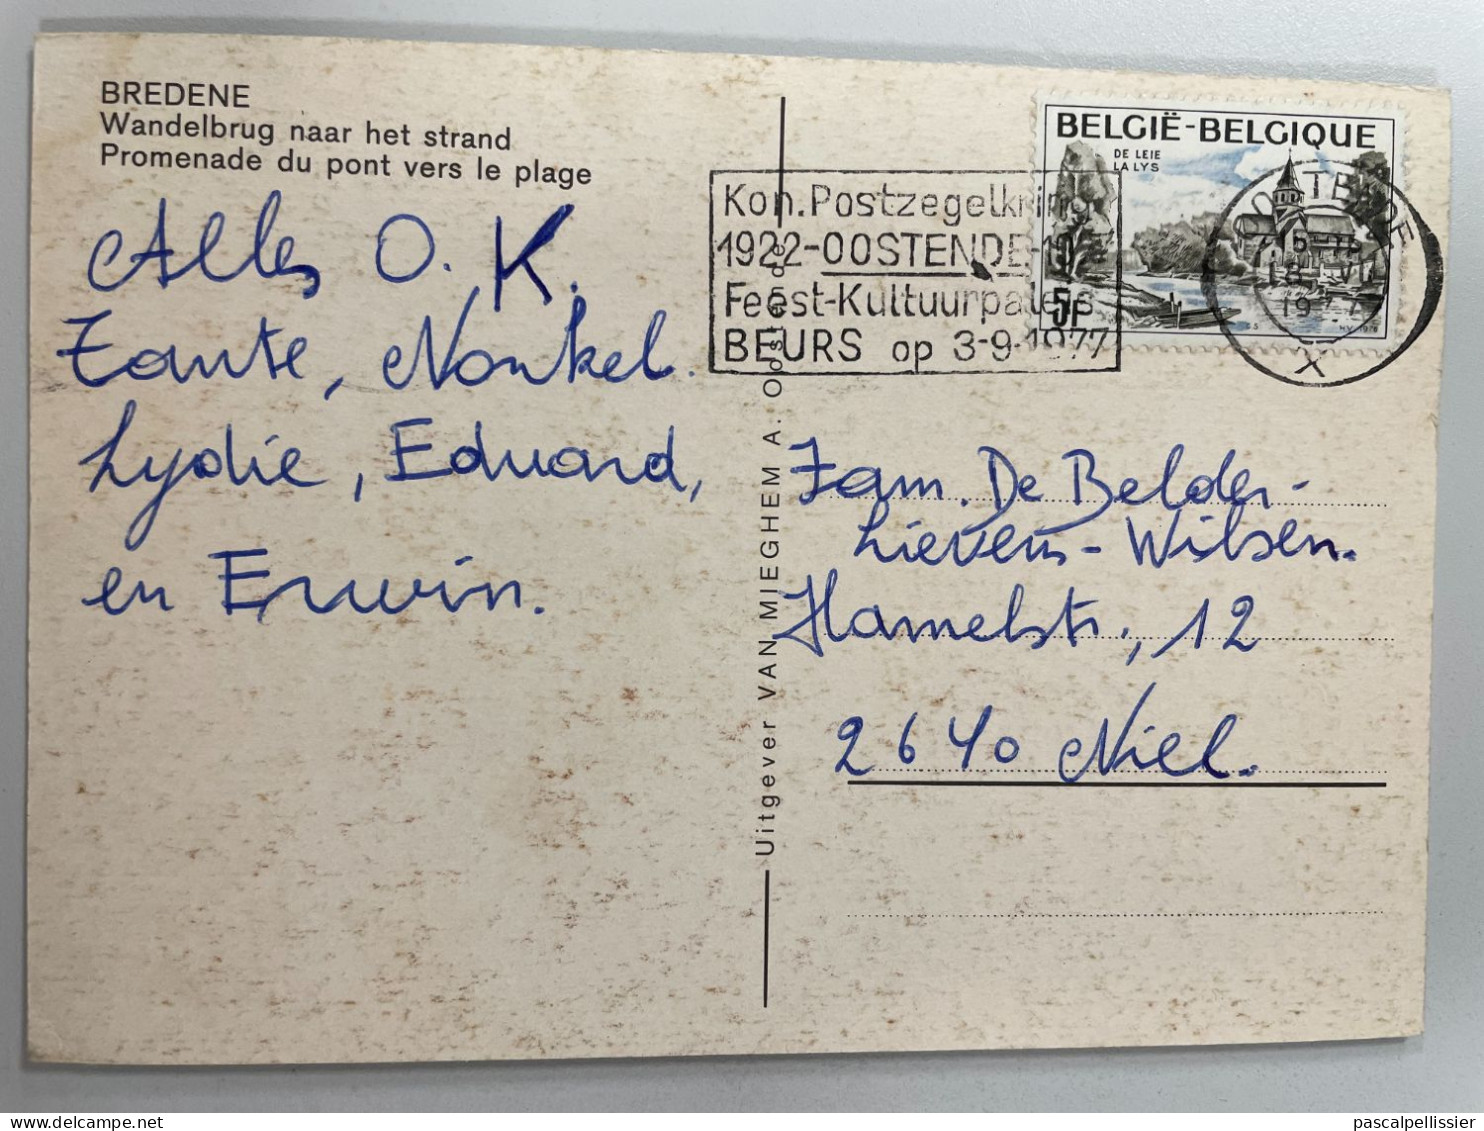 BREDENE
Wandelbrug naar het strand
Promenade du pont vers le plage
Alles O.K.
Tante, Nonkel.
Lydie, Eduard,
en Erwin.
Uitgever VAN MIEGHEM A. Oostende
Kon. Postzegelkring
1922-OOSTENDE-19
Feest-Kultuurpaleis
BEURS op 3-9-1977
BELGIË-BELGIQUE
DE LEIE
LA LYS
5F
N.V. 1976
OOSTENDE
X
Fam. De Belder-
Lievens-Wilsen.
Hamelstr, 12
2640 Niel.
pascalpellissier